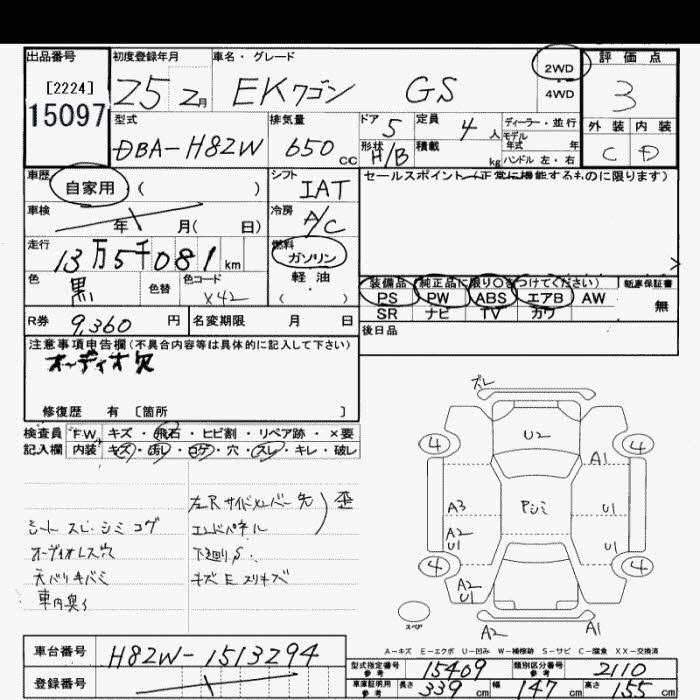 出品番号
[2224]
15097
初度登録年月
25 2月
車名・グレード
EKワゴン GS
2WD
4WD
評価点
3
外装 内装
C D
型式
DBA-H82W
排気量
650 cc
ドア 5
定員 4 人
形状 H/B
積載 kg
ディーラー・並行
モデル
年式 年
ハンドル 左・右
車歴
自家用 ( )
シフト
IAT
セールスポイント(正常に機能するものに限ります)
車検
年 月( 日)
冷房
A/C
走行
13万5千081 km
燃料
ガソリン
軽油
( )
色
黒
色替
色コード
X42
装備品 (純正品に限り○をつけてください)
PS PW ABS エアB AW
SR ナビ TV カワ
新車保証書
無
R券 9,360 円
名変期限 月 日
後日品
注意事項申告欄(不具合内容等は具体的に記入して下さい)
オーディオ欠
修復歴 有 [箇所 ]
検査員 FW キズ・飛石・ヒビ割・リペア跡・×要
記入欄 内装 キズ・汚レ・コゲ・穴・スレ・キレ・破レ
左Rサイドメンバー先 歪
シート スレ・シミ コゲ
エンドパネル
オーディオレス穴
下廻りS・
天バリキバミ
キズ E スリキズ
車内臭イ
ズレ
U2
4
4
A1
A3
Pシミ
U1
A2
U1
U1
4
4
A2
U1
スペア
A2
A1
A-キズ E-エクボ U-凹み W-補修跡 S-サビ C-腐食 XX-交換済
車台番号 H82W-1513294
登録番号
型式指定番号
参考
15409
類別区分番号
参考
2110
車庫証明用
参考
長さ 339 cm 幅 147 cm 高さ 155 cm